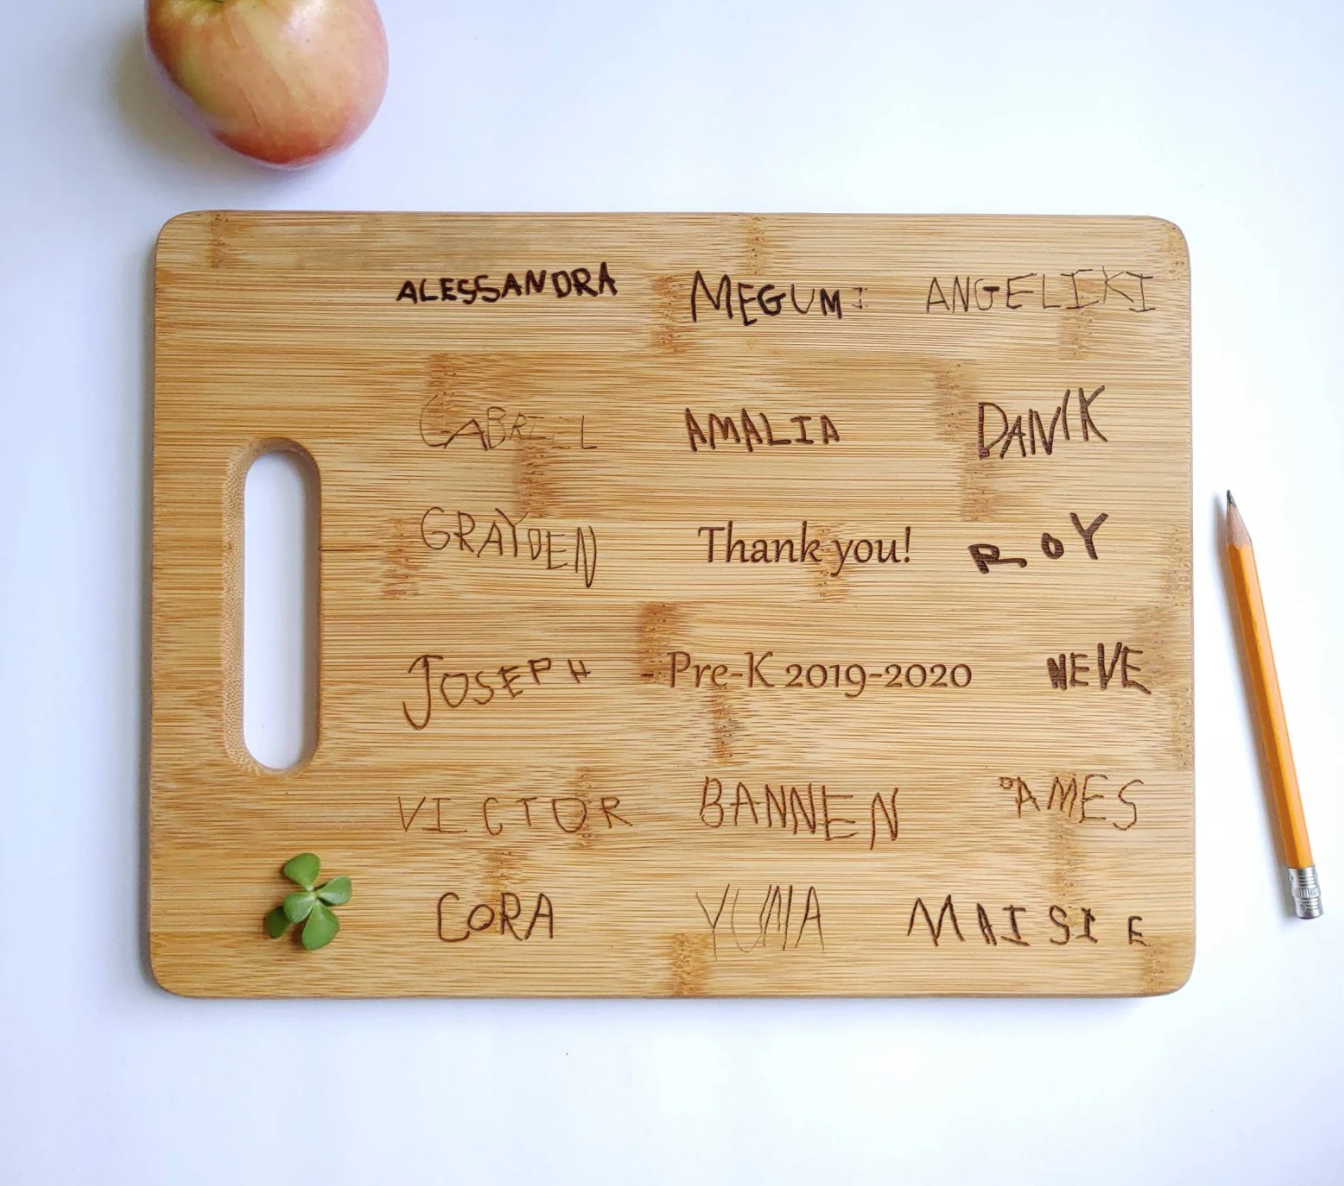 ALESSANDRA MEGUMI ANGELIKI
GABRIEL AMALIA DANIK
GRAYDEN Thank you! ROY
JOSEPH Pre-K 2019-2020 NEVE
VICTOR BANNEN JAMES
CORA YUMA MAISIE